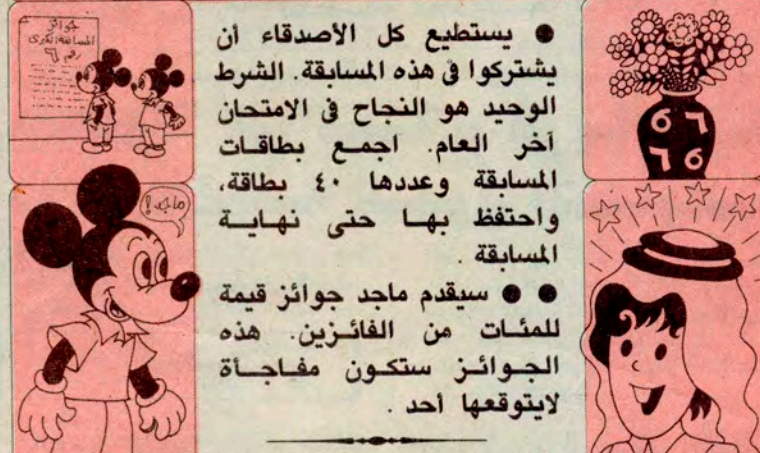 جوائز
المسابقة الكبرى
رقم ٦
ماجد!
● يستطيع كل الأصدقاء أن
يشتركوا في هذه المسابقة. الشرط
الوحيد هو النجاح في الامتحان
آخر العام. اجمع بطاقات
المسابقة وعددها ٤٠ بطاقة،
واحتفظ بها حتى نهاية
المسابقة.
● ● سيقدم ماجد جوائز قيمة
للمئات من الفائزين. هذه
الجوائز ستكون مفاجأة
لايتوقعها أحد.
6 ٦
٦ 6